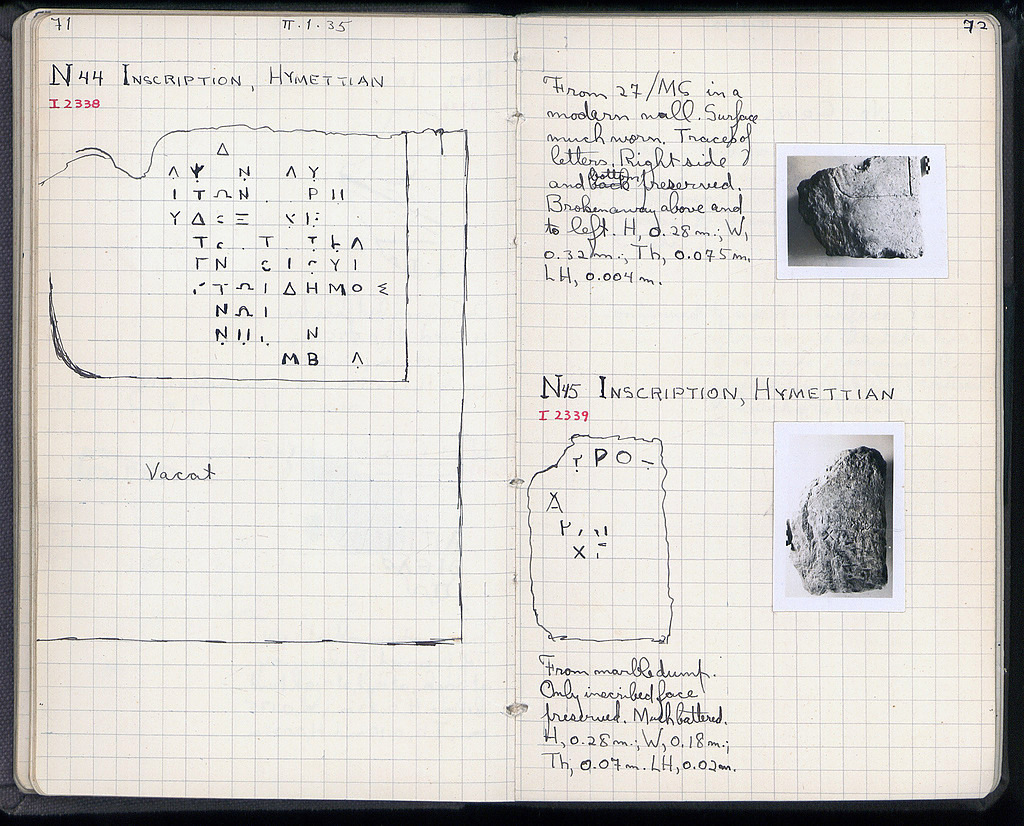 71
II.1.35
N 44 INSCRIPTION, HYMETTIAN
I 2338
Δ
Λ Ψ Ν Λ Υ
Ι Τ Ω Ν Ρ Ι Ι
Υ Δ Ξ
Τ Τ Τ Λ
Γ Ν Ι Υ Ι
Τ Ω Ι Δ Η Μ Ο Σ
Ν Ω Ι
Ν Ι Ι Ν
Μ Β Λ
Vacat
72
From 27/MS in a
modern wall. Surface
much worn. Traces of
letters. Right side ?
bottom
and back preserved.
Broken away above and
to left. H, 0.28 m.; W,
0.32 m.; Th, 0.075 m.
LH, 0.004 m.
N 45 INSCRIPTION, HYMETTIAN
I 2339
Ρ Ο
Α
Χ
From marble dump.
Only inscribed face
preserved. Much battered.
H, 0.28 m.; W, 0.18 m.;
Th, 0.07 m. LH, 0.02 m.